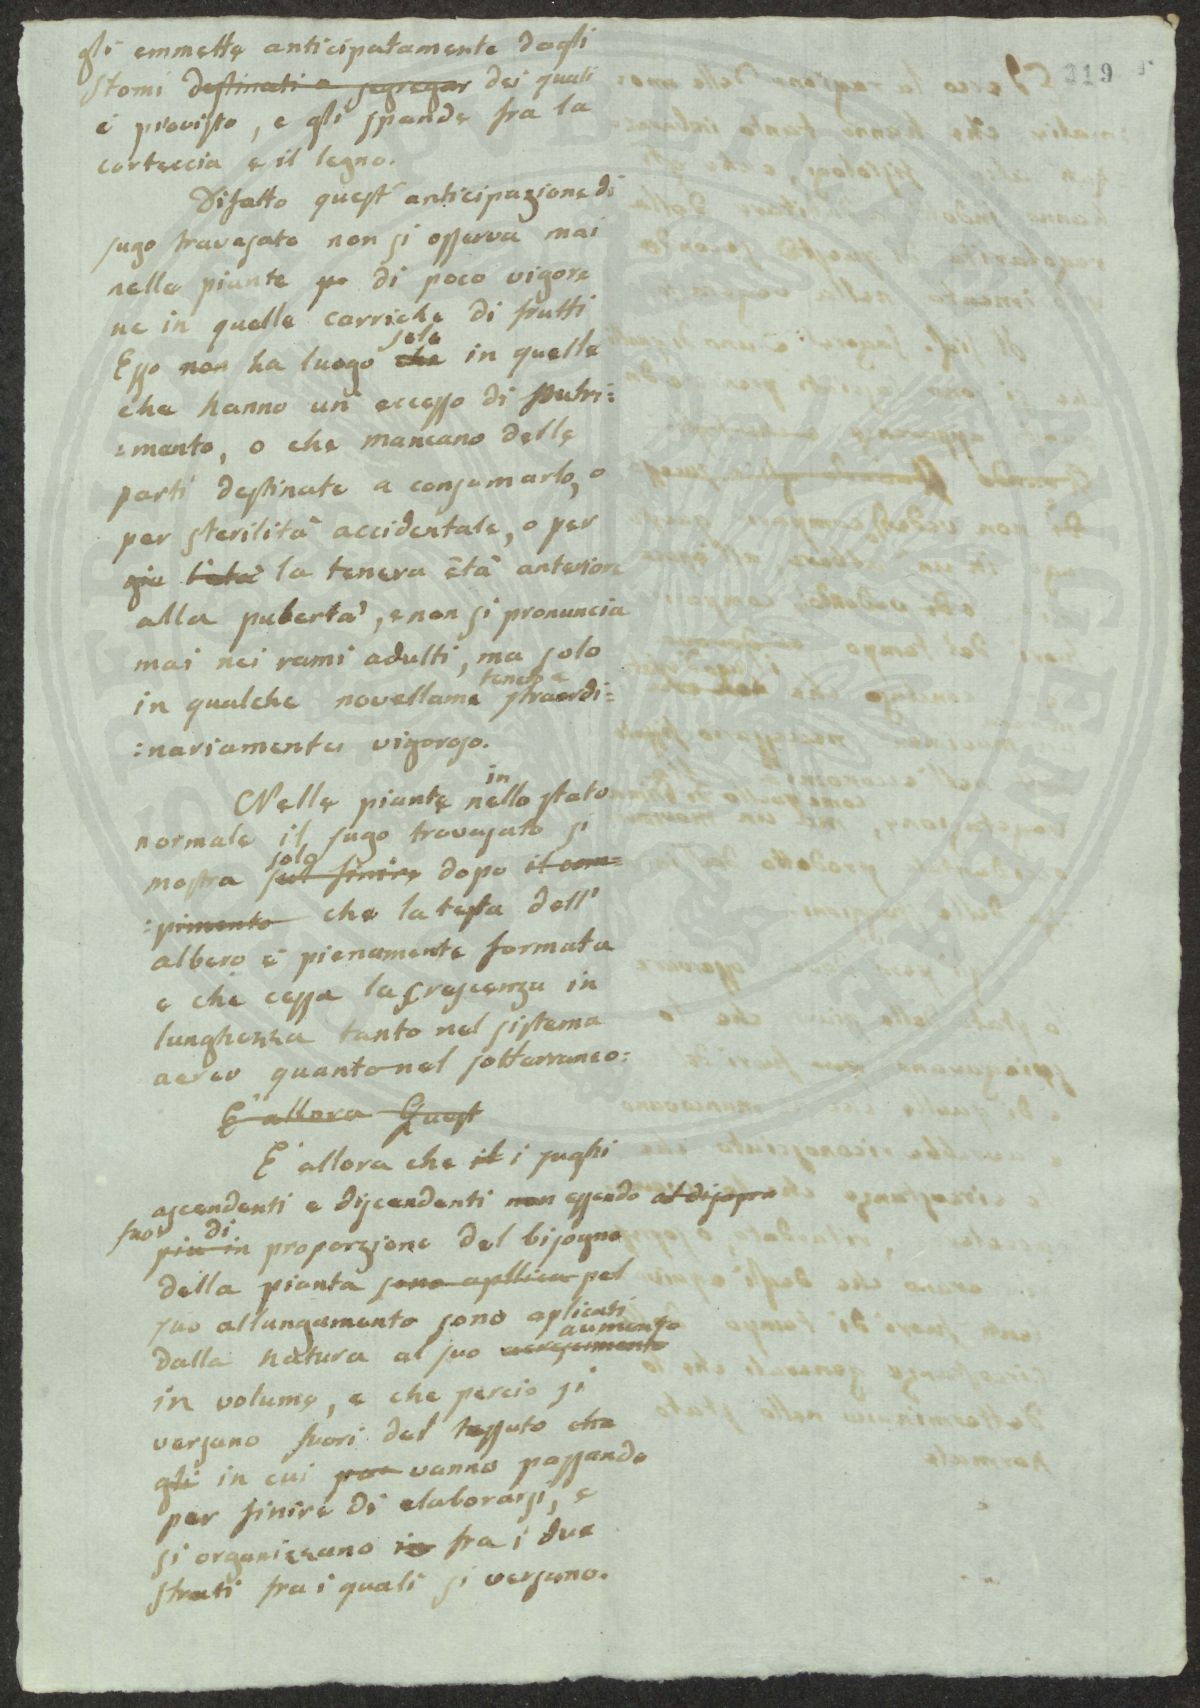 219
gli emmette anticipatamente dagli
stomi destinati a segregar dei quali
è provisto, e gli spande fra la
corteccia e il legno.
Difatto quest' anticipazione di
sugo travasato non si osserva mai
nelle piante po di poco vigore
ne in quelle carriche di frutti
solo
Esso non ha luogo che in quelle
che hanno un eccesso di Nutri=
=mento, o che mancano delle
parti destinate a consumarlo, o
per sterilità accidentale, o per
già l'età la tenera età anteriore
alla pubertà, e non si pronuncia
mai nei rami adulti, ma solo
tenero e
in qualche novellame straordi=
=nariamente vigoroso.
in
Nelle piante nello stato
normale il sugo travasato si
solo
mostra sul finire dopo il com=
=pimento che la testa dell'
albero è pienamente formata
e che cessa la crescenza in
lunghezza tanto nel sistema
aereo quanto nel sotterraneo:
E' allora Quest
E' allora che il i sughi
ascendenti e discendenti non essendo al disopra
fuor di
più in proporzione del bisogno
della pianta sono apllica pel
suo allungamento sono aplicati
aumento
dalla natura al suo acrescimento
in volume, e che perciò si
versano fuori del tessuto che
gli in cui pas vanno passando
per finire di elaborarsi, e
si organizzano in fra i due
strati fra i quali si versano.